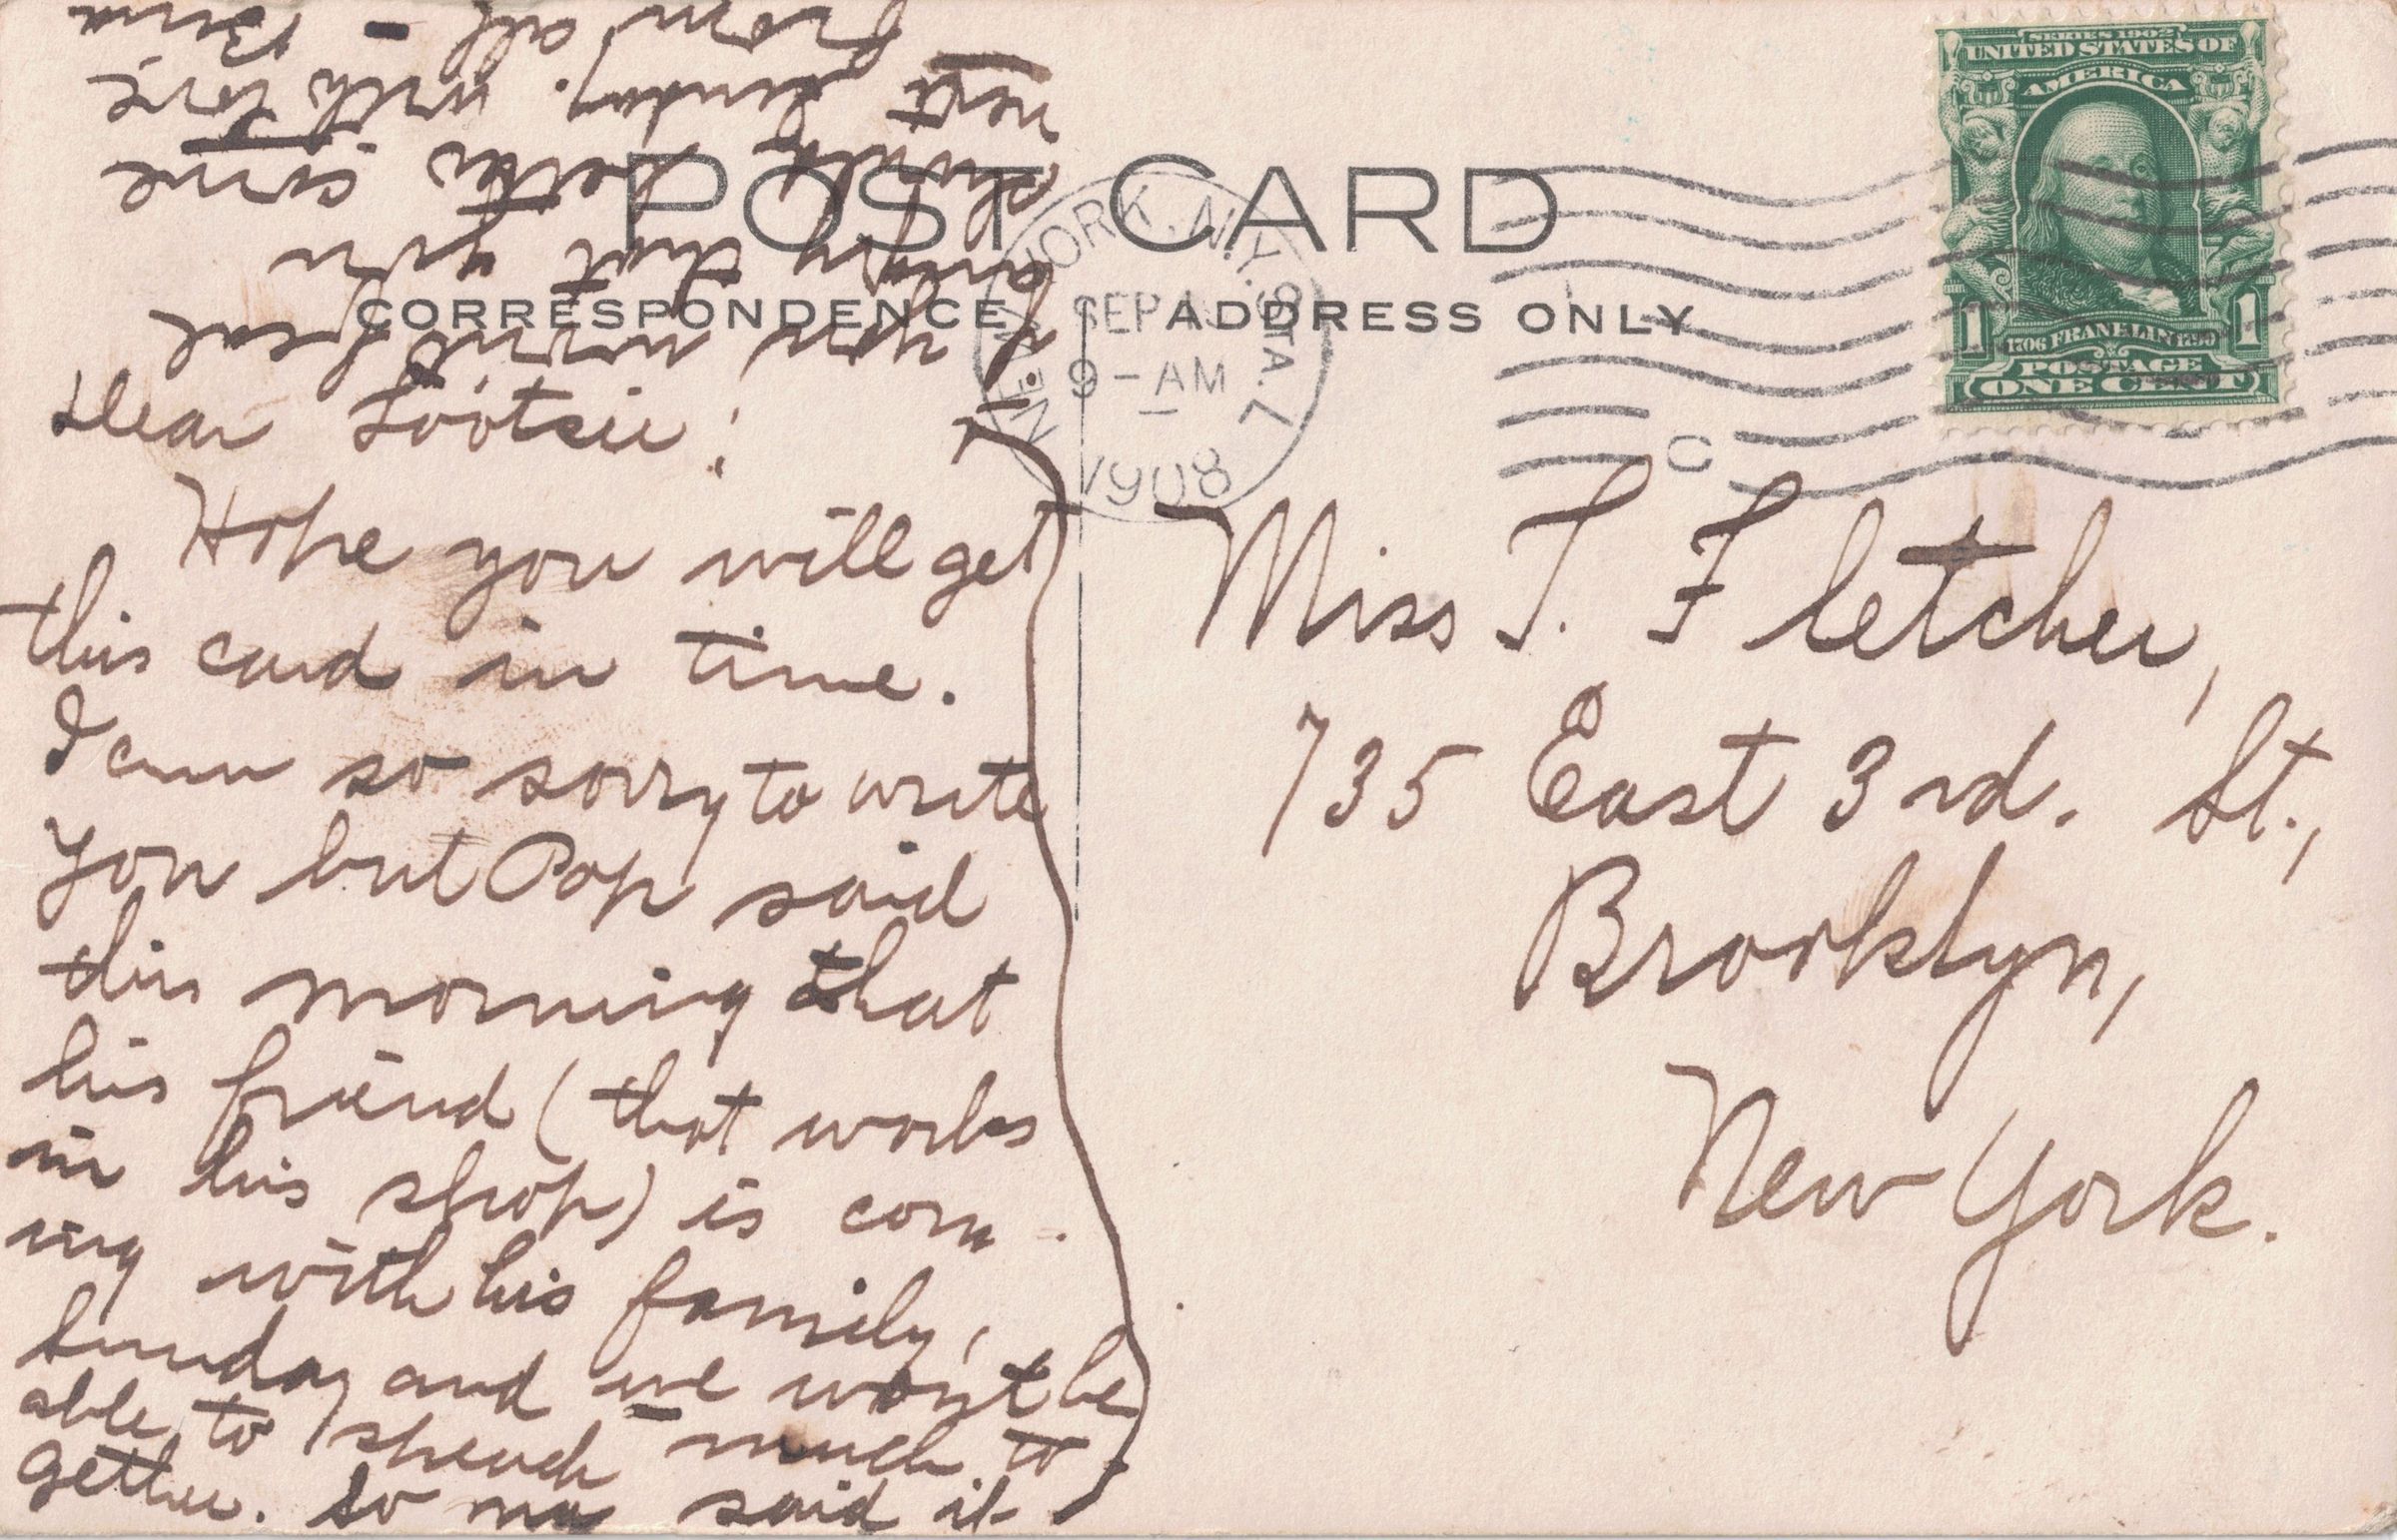 POST CARD
CORRESPONDENCE
ADDRESS ONLY
SERIES 1902
UNITED STATES OF
AMERICA
1706 FRANKLIN 1790
1 1
POSTAGE
ONE CENT
NEW YORK, N.Y. STA. L
SEP
9-AM
1908
C
Dear Tootsie!
Hope you will get
this card in time.
I am so sorry to write
you but Pop said
this morning that
his friend (that works
in his shop) is com-
ing with his family,
Sunday and we won't be
able to spend much to-
gether. So ma said it
if you won't feel
angry that you
should better come
next Sunday. With love
from all –
Miss T. Fletcher,
735 East 3rd. St.,
Brooklyn,
New York.